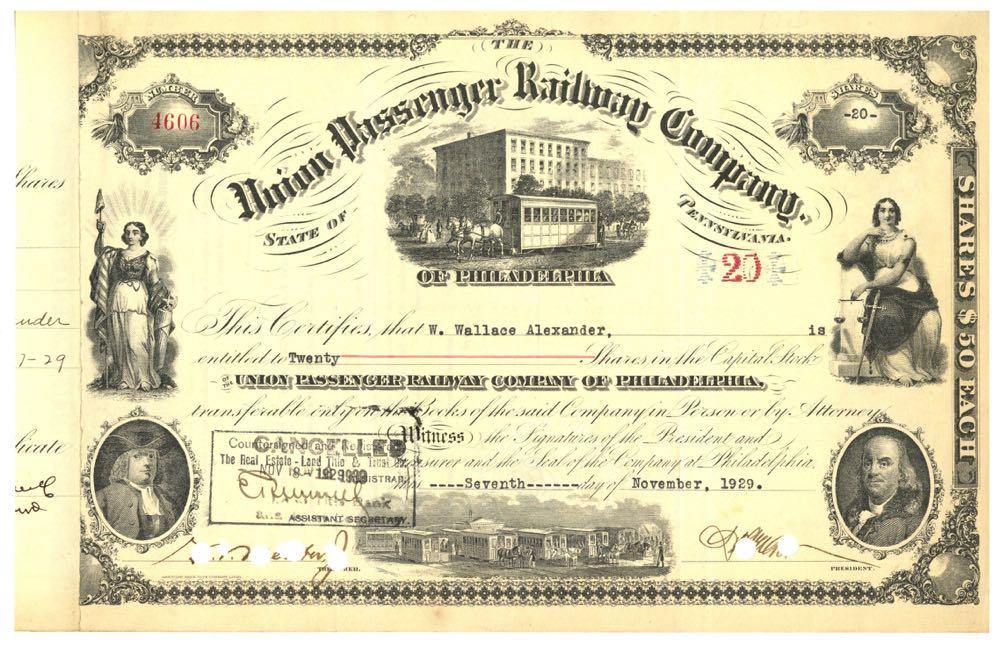 THE
NUMBER
4606
SHARES
-20-
Union Passenger Railway Company,
STATE OF
PENNSYLVANIA.
OF PHILADELPHIA
20
SHARES $50 EACH
Shares
This Certifies, that W. Wallace Alexander, is
entitled to Twenty Shares in the Capital Stock
OF THE UNION PASSENGER RAILWAY COMPANY OF PHILADELPHIA,
transferable only on the Books of the said Company in Person or by Attorney.
Witness the Signatures of the President and
Treasurer and the Seal of the Company at Philadelphia,
this ----Seventh------day of November, 1929.
Countersigned and Registered
CANCELLED
The Real Estate-Land Title & Trust Co.
NOV 1929
REGISTRAR
ASSISTANT SECRETARY.
7-29
PRESIDENT.